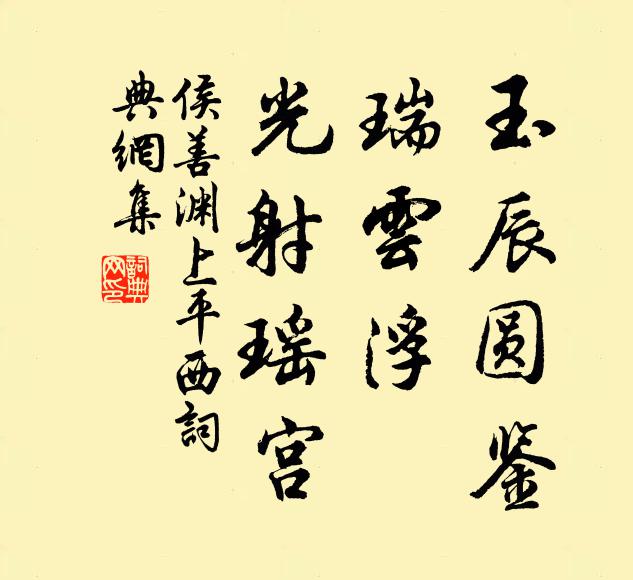 玉辰圆鉴
瑞雲浮
光射瑶宫
侯善渊上平西詞
典網集
詞典網印